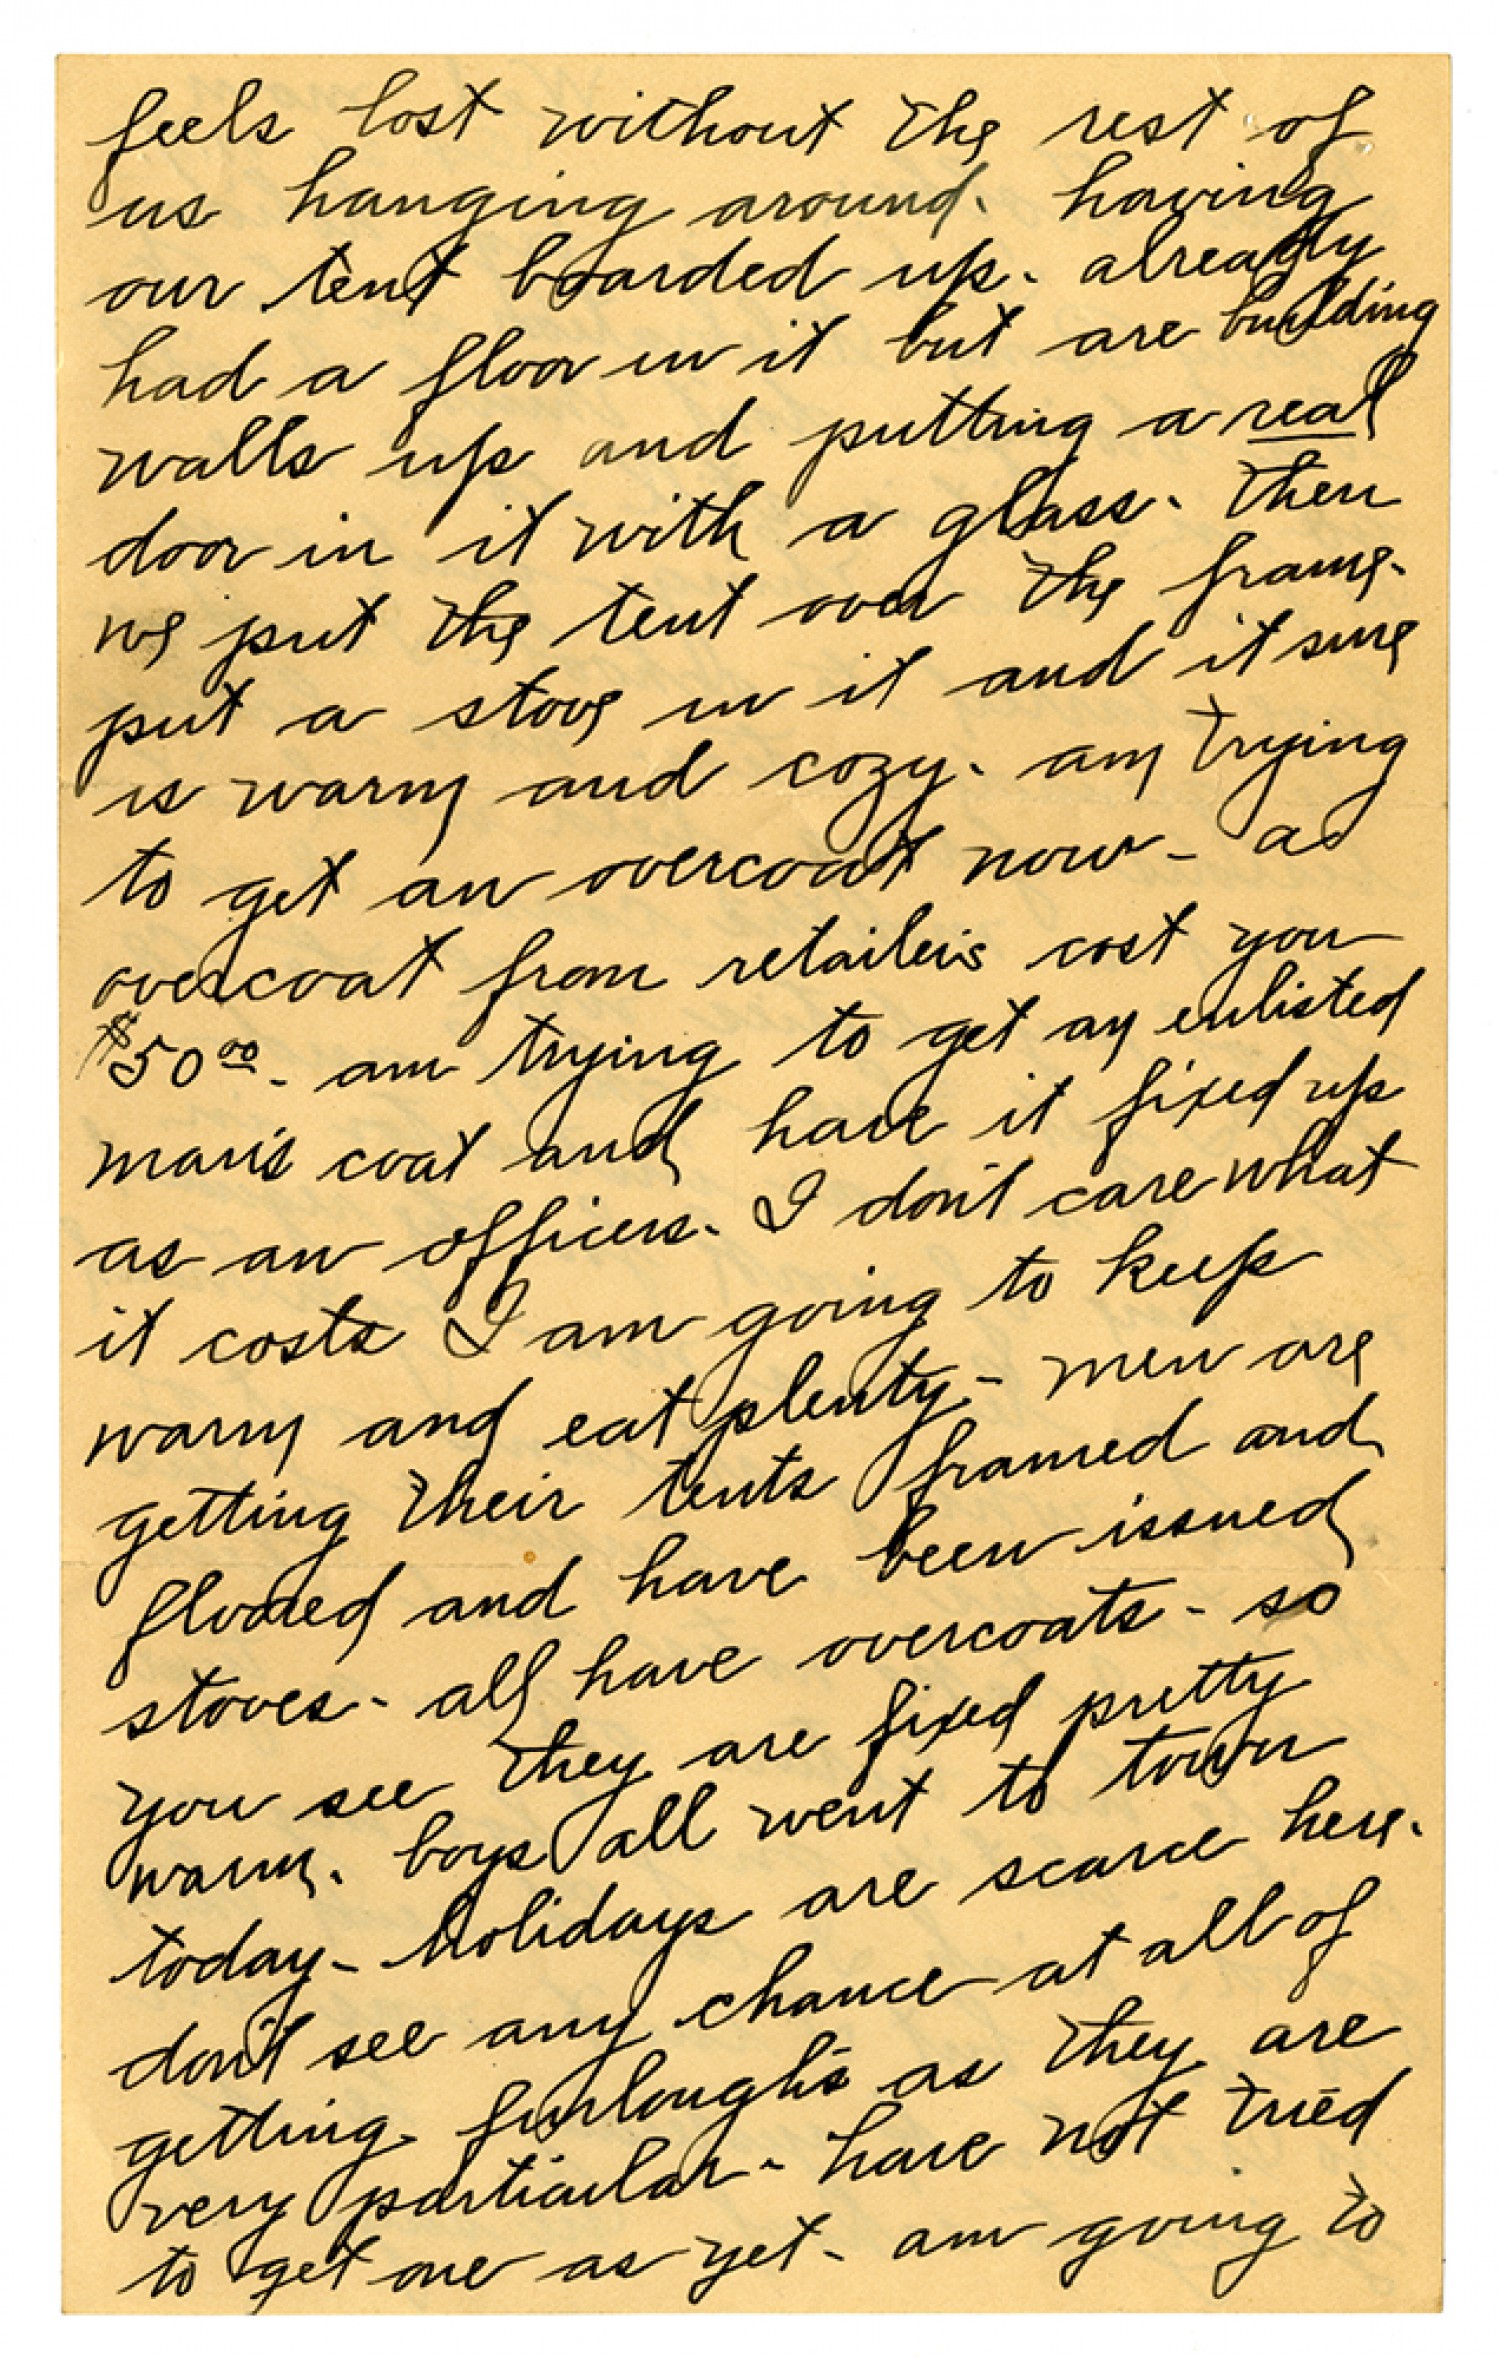 feels lost without the rest of
us hanging around. having
our tent boarded up. already
had a floor in it but are building
walls up and putting a real
door in it with a glass. Then
we put the tent over the frame.
put a stove in it and it sure
is warm and cozy. am trying
to get an overcoat now - as
overcoat from retailer's cost you
$50.00 - am trying to get an enlisted
man's coat and have it fixed up
as an officers. I don't care what
it costs I am going to keep
warm and eat plenty - men are
getting their tents framed and
floored and have been issued
stoves - all have overcoats - so
you see they are fixed pretty
warm. boys all went to town
today - holidays are scarce here.
don't see any chance at all of
getting furlough's as they are
very particular - have not tried
to get one as yet - am going to